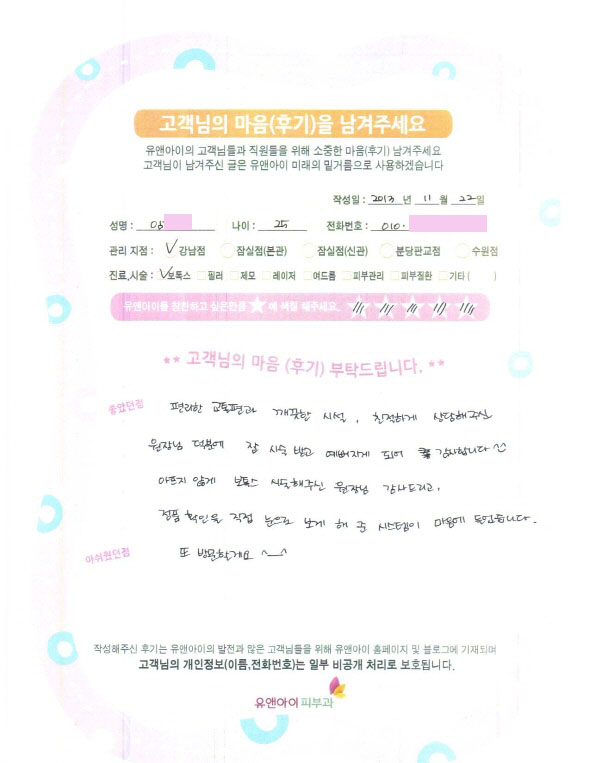 고객님의 마음(후기)을 남겨주세요
유앤아이의 고객님들과 직원들을 위해 소중한 마음(후기) 남겨주세요
고객님이 남겨주신 글은 유앤아이 미래의 밑거름으로 사용하겠습니다
작성일 : 2013 년 11 월 22 일
성명 : 나이 : 25 전화번호 : 010-
관리 지점 : 강남점 잠실점(본관) 잠실점(신관) 분당판교점 수원점
진료,시술 : 보톡스 필러 제모 레이저 여드름 피부관리 피부질환 기타 ( )
유앤아이를 칭찬하고 싶은만큼 ★에 색칠 해주세요.
** 고객님의 마음 (후기) 부탁드립니다. **
좋았던점 편리한 교통편과 깨끗한 시설, 친절하게 상담해주신
원장님 덕분에 잘 시술 받고 예뻐지게 되어 감사합니다 ^^
아프지 않게 보톡스 시술해주신 원장님 감사드리고,
정품 확인을 직접 눈으로 보게 해 준 시스템이 마음에 들었습니다.
아쉬웠던점 또 방문할게요 ^__^
작성해주신 후기는 유앤아이의 발전과 많은 고객님들을 위해 유앤아이 홈페이지 및 블로그에 기재되며
고객님의 개인정보(이름,전화번호)는 일부 비공개 처리로 보호됩니다.
유앤아이 피부과